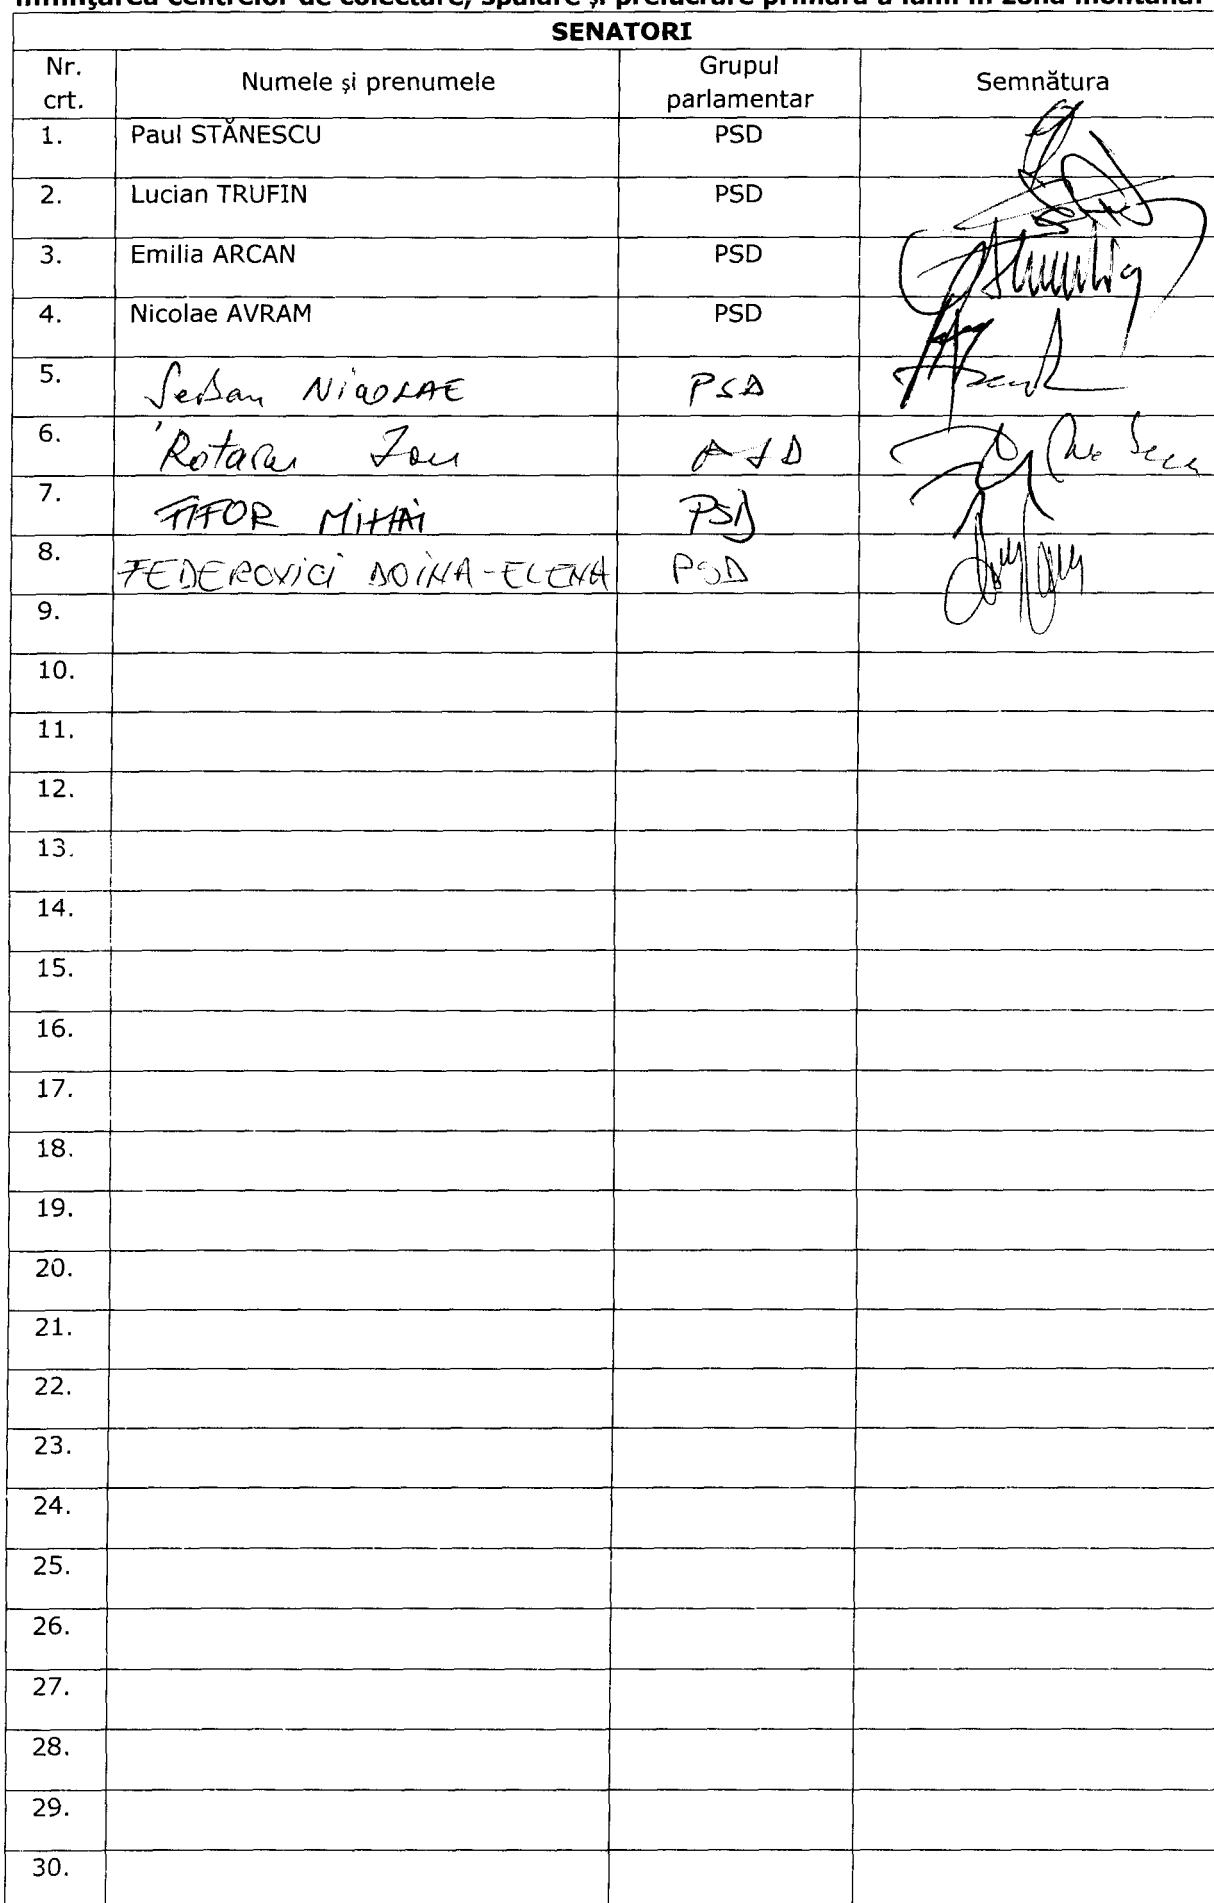 înfiinţarea centrelor de colectare, spălare şi prelucrare primară a lânii în zona montană.
SENATORI
Nr. crt. Numele şi prenumele Grupul parlamentar Semnătura
1. Paul STĂNESCU PSD
2. Lucian TRUFIN PSD
3. Emilia ARCAN PSD
4. Nicolae AVRAM PSD
5. Serban NICOLAE PSD
6. Rotaru Ion PSD
7. FIFOR MIHAI PSD
8. FEDEROVICI DOINA-ELENA PSD
9.
10.
11.
12.
13.
14.
15.
16.
17.
18.
19.
20.
21.
22.
23.
24.
25.
26.
27.
28.
29.
30.